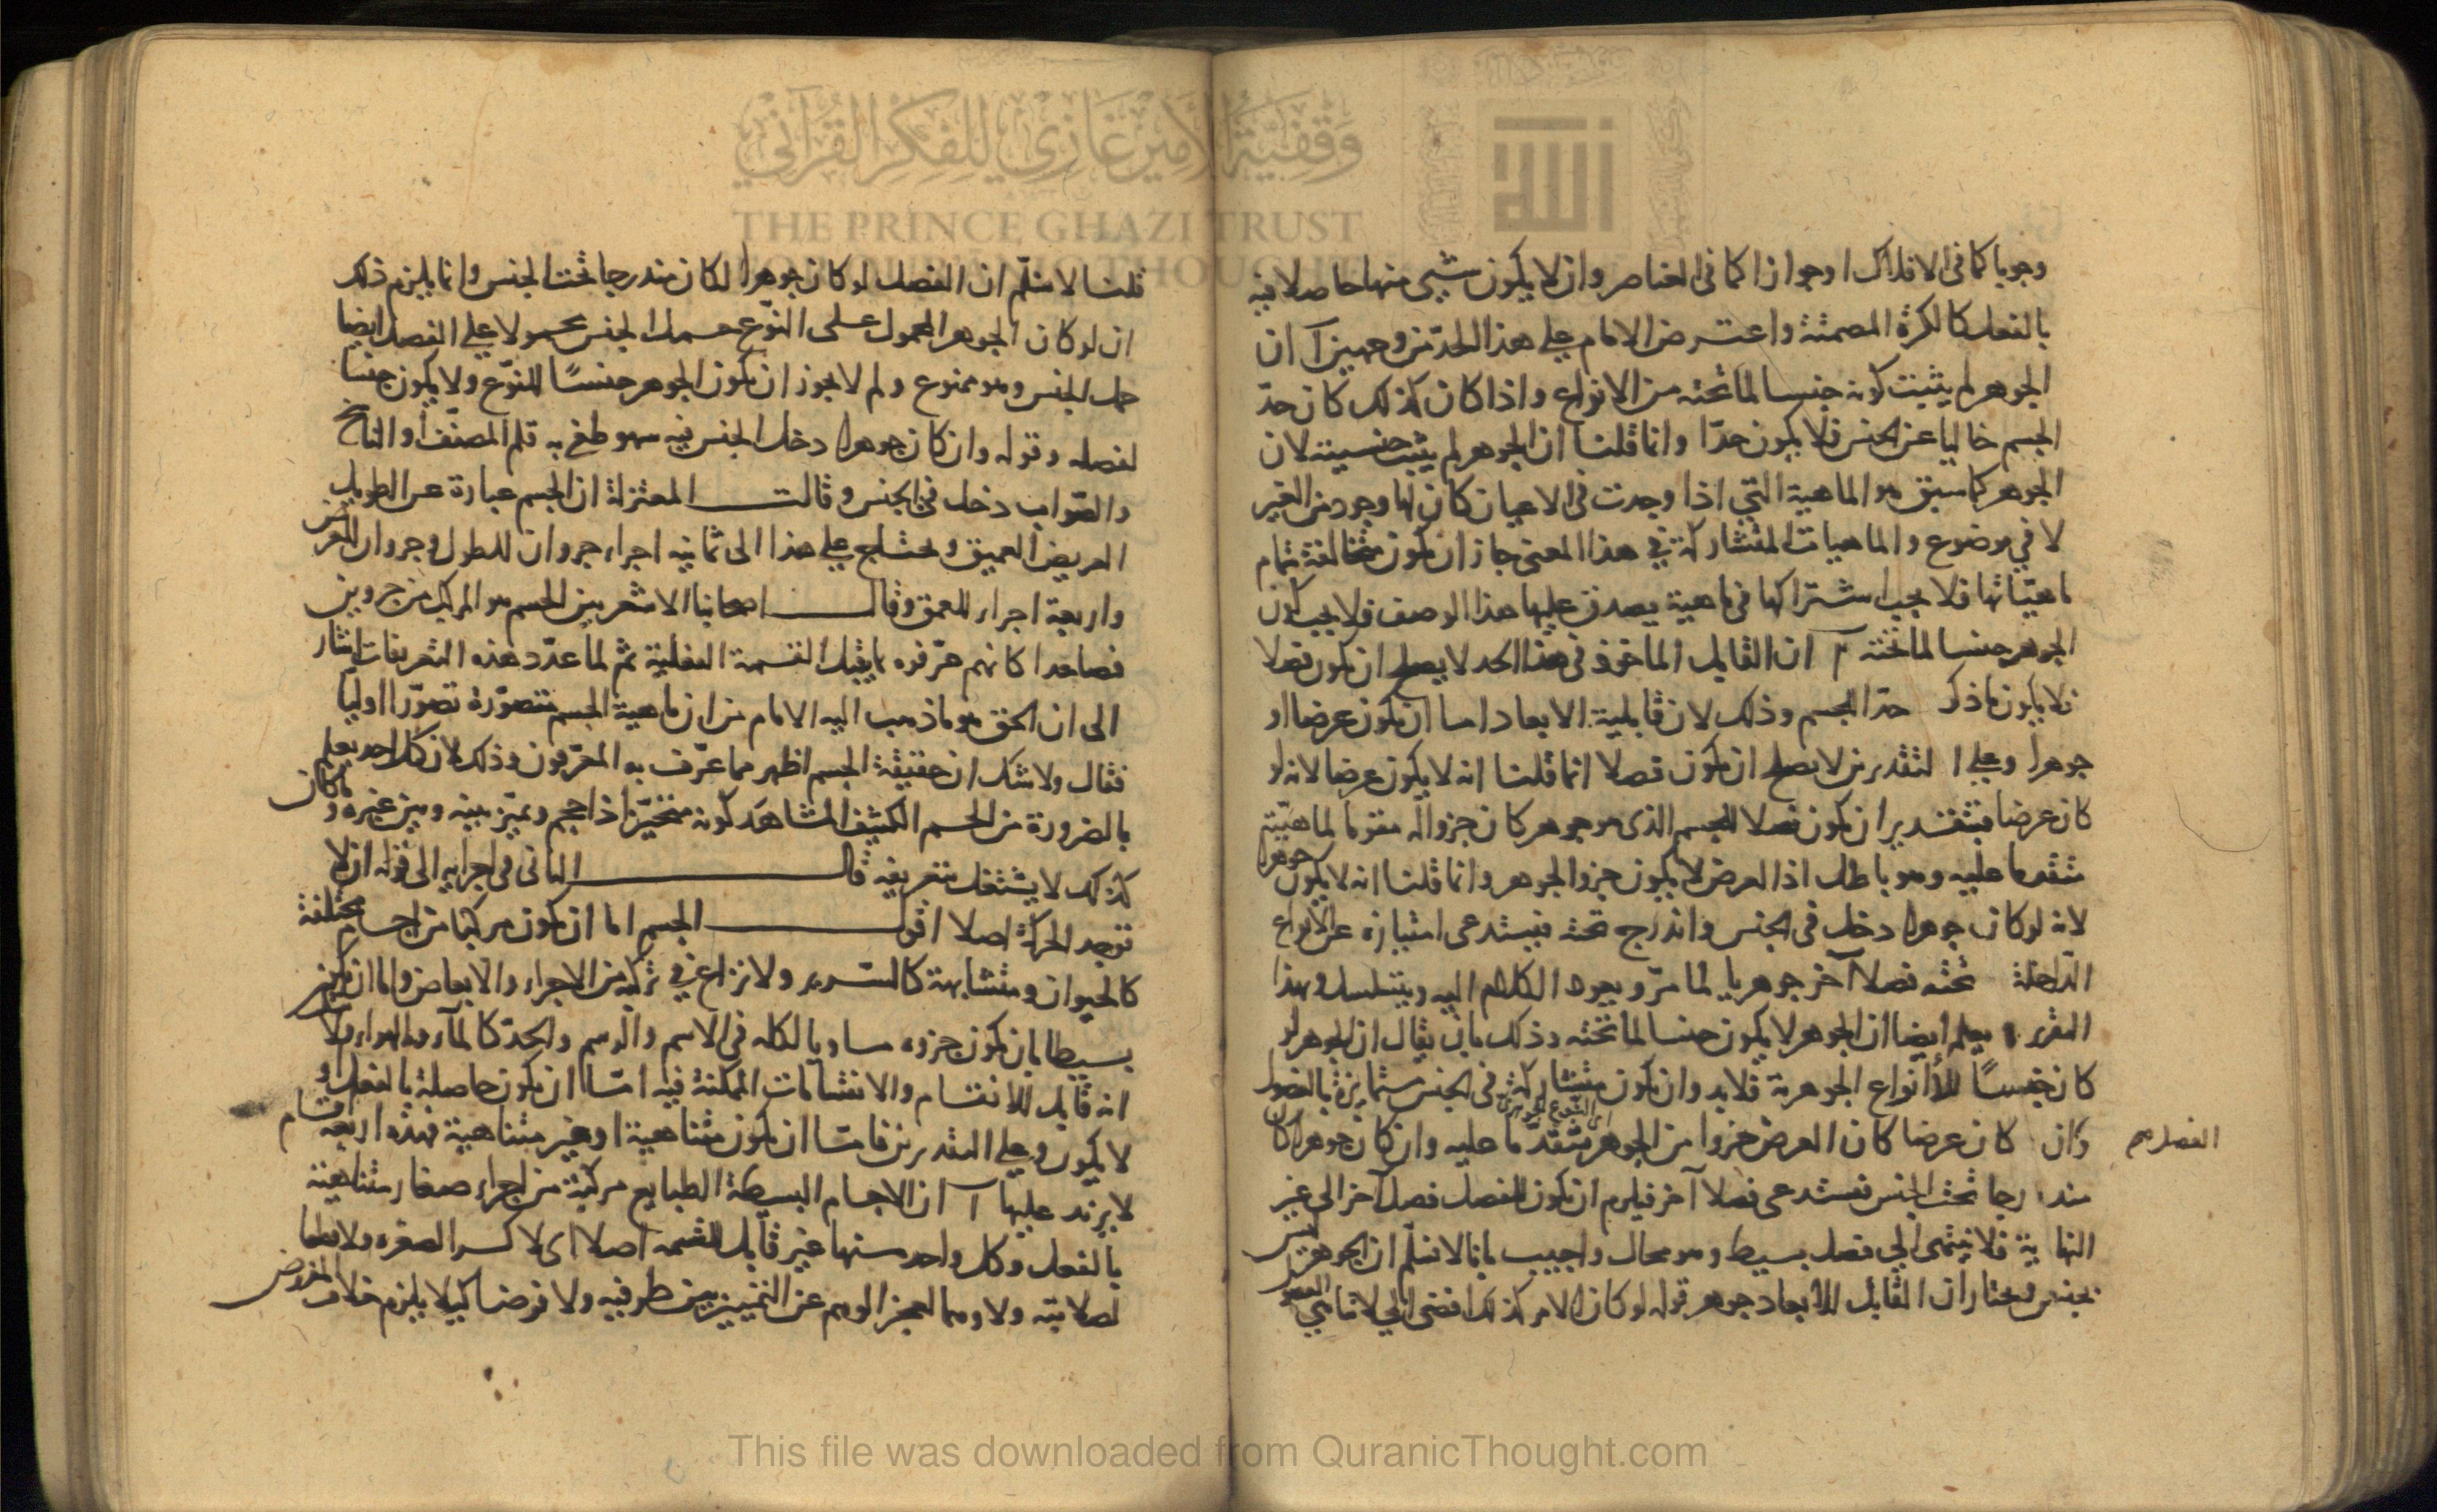 وجوبا كما فى الافلاك او جوازا كما فى العناصر وان لا يكون شيى منها حاصلا فيه
بالفعل كالكرة المصمتة واعترض الامام على هذا الحد من وجهين آ ان
الجوهر لم يثبت كونه جنسا لما تحته من الانواع واذا كان كذلك كان حدّ
الجسم خاليا عن الجنس فلا يكون حدّا وانما قلنا ان الجوهر لم يثبت جنسيته لان
الجوهر كما سبق هو الماهية التى اذا وجدت فى الاعيان كان لها وجود من الغير
لا في موضوع والماهيات المتشاركة في هذا المعنى جاز ان يكون متخالفة بتمام
ماهيّاتها فلا يجب اشتراكها فى ماهية يصدق عليها هذا الوصف فلا يجب كون
الجوهر جنسا لما تحته ب ان القابل الماخوذ فى هذا الحد لا يصلح ان يكون فصلا
فلا يكون ما ذكر حدّ الجسم وذلك لان قابلية الابعاد اما ان يكون عرضا او
جوهرا وعلى التقديرين لا يصلح ان يكون فصلا انما قلنا انه لا يكون عرضا لانه لو
كان عرضا فبتقدير ان يكون فصلا للجسم الذى هو جوهر كان جزواله مقوما لماهيته
متقدما عليه وهو باطل اذ العرض لا يكون جزو الجوهر وانما قلنا انه لا يكون جوهرا
لانه لو كان جوهرا دخل فى الجنس واندرج تحته فيستدعى امتيازه عن الانواع
الداخلة تحته فصلا آخر جوهريا لما مرّ ويعود الكلام اليه ويتسلسل وبهذا
التقرير يعلم ايضا ان الجوهر لا يكون جنسا لما تحته وذلك بان يقال ان الجوهر لو
كان جنسًا للأنواع الجوهرية فلابد وان يكون متشاركة فى الجنس متمايزة بالفصول
الفصل هم
وان كان عرضا كان العرض جزوا من الجوهر متقدّما عليه وان كان جوهرا كان
اى النوع الجوهرى
مندرجا تحت الجنس فيستدعى فصلا آخر فيلزم ان يكون للفصل فصل آخر الى غير
النهاية فلا ينتهى الي فصل بسيط وهو محال واجيب بانا لا نسلّم ان الجوهر ليس
بجنس ونختار ان القابل للابعاد جوهر قوله لو كان الامر كذلك افضى الي لا تناهي الفصول
قلنا لا نسلّم ان الفصل لو كان جوهرا لكان مندرجا تحت الجنس وانما يلزم ذلك
ان لو كان الجوهر المحمول على النوّع حمل الجنس محمولا على الفصل ايضا
حمل الجنس وهو ممنوع ولم لا يجوز ان يكون الجوهر جنسًا للنوّع ولا يكون جنسا
لفصله وقوله وان كان جوهرا دخل الجنس فيه سهو طغى به قلم المصنّف او الناسخ
والصّواب دخل فى الجنس وقالت المعتزلة ان الجسم عبارة عن الطويل
العريض العميق ويحتاج على هذا الى ثمانيه اجراء جروان للطول وجروان للعرض
واربعة اجراء للعمق وقال اصحابنا الاشعريين الجسم هو المركب من جروين
فصاعدا كانهم عرّفوه بما يقبل القسمة العقلية ثم لما عدّد هذه التعريفات اشار
الى ان الحق هو ما ذهب اليه الامام من ان ماهية الجسم متصوّرة تصوّرا اوليا
فقال ولا شك ان حقيقة الجسم اظهر مما عرّف به المعرّفون وذلك لان كل احد يعلم
بالضرورة من الجسم الكثيف المشاهد كونه متحيّزا ذا حجم ويميّز بينه وبين غيره وما كان
كذلك لا يشتغل بتعريفه قال الثانى فى اجزايه الى قوله ان لا
توجد الحركة اصلا اقول الجسم اما ان يكون مركبا من اجسام مختلفة
كالحيوان ومتشابهة كالسّرير ولا نزاع في تركّبه من الاجراء والابعاض واما ان يكون
بسيطا بان يكون جزوه مساويا لكله فى الاسم والرسم والحدّ كالمآء والهواء ولا شك
انه قابل للانقسام والانقسامات الممكنة فيه امّا ان يكون حاصلة بالفعل او
لا يكون وعلى التقديرين فامّا ان يكون متناهية او غير متناهية فهذه اربعة اقسام
لا يزيد عليها آ ان الاجسام البسيطة الطبايع مركبة من اجراء صغار متناهية
بالفعل وكل واحد منها غير قابل للقسمه اصلا اى لا كسرا لصغره ولا قطعا
لصلابته ولا وهما لعجز الوهم عن التمييز بين طرفيه ولا فرضا كيلا يلزم خلاف المفروض
وقفية الأمير غازي للفكر القرآني
THE PRINCE GHAZI TRUST
This file was downloaded from QuranicThought.com